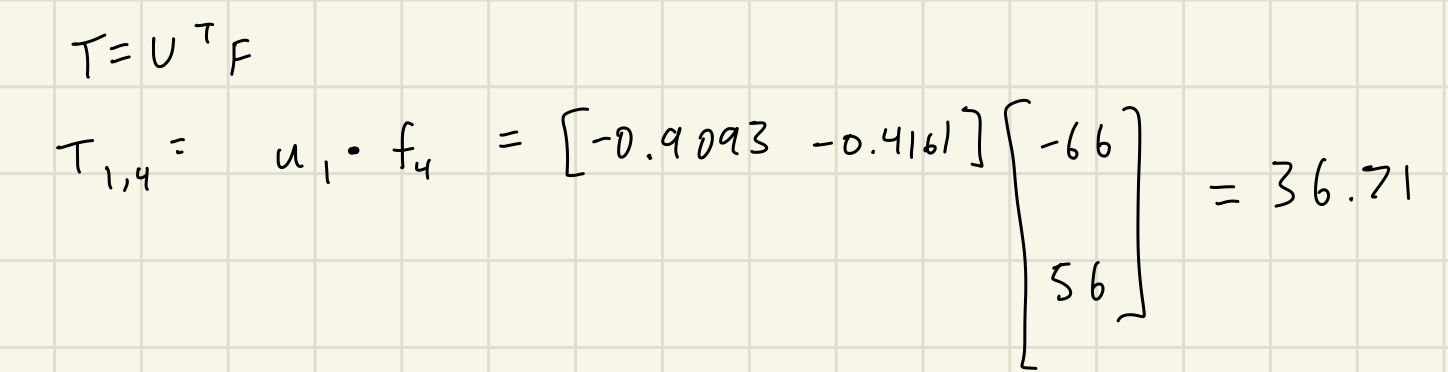 T = U^T F
T_{1,4} = u_1 • f_4 = [-0.9093 -0.4161] [-66 56] = 36.71